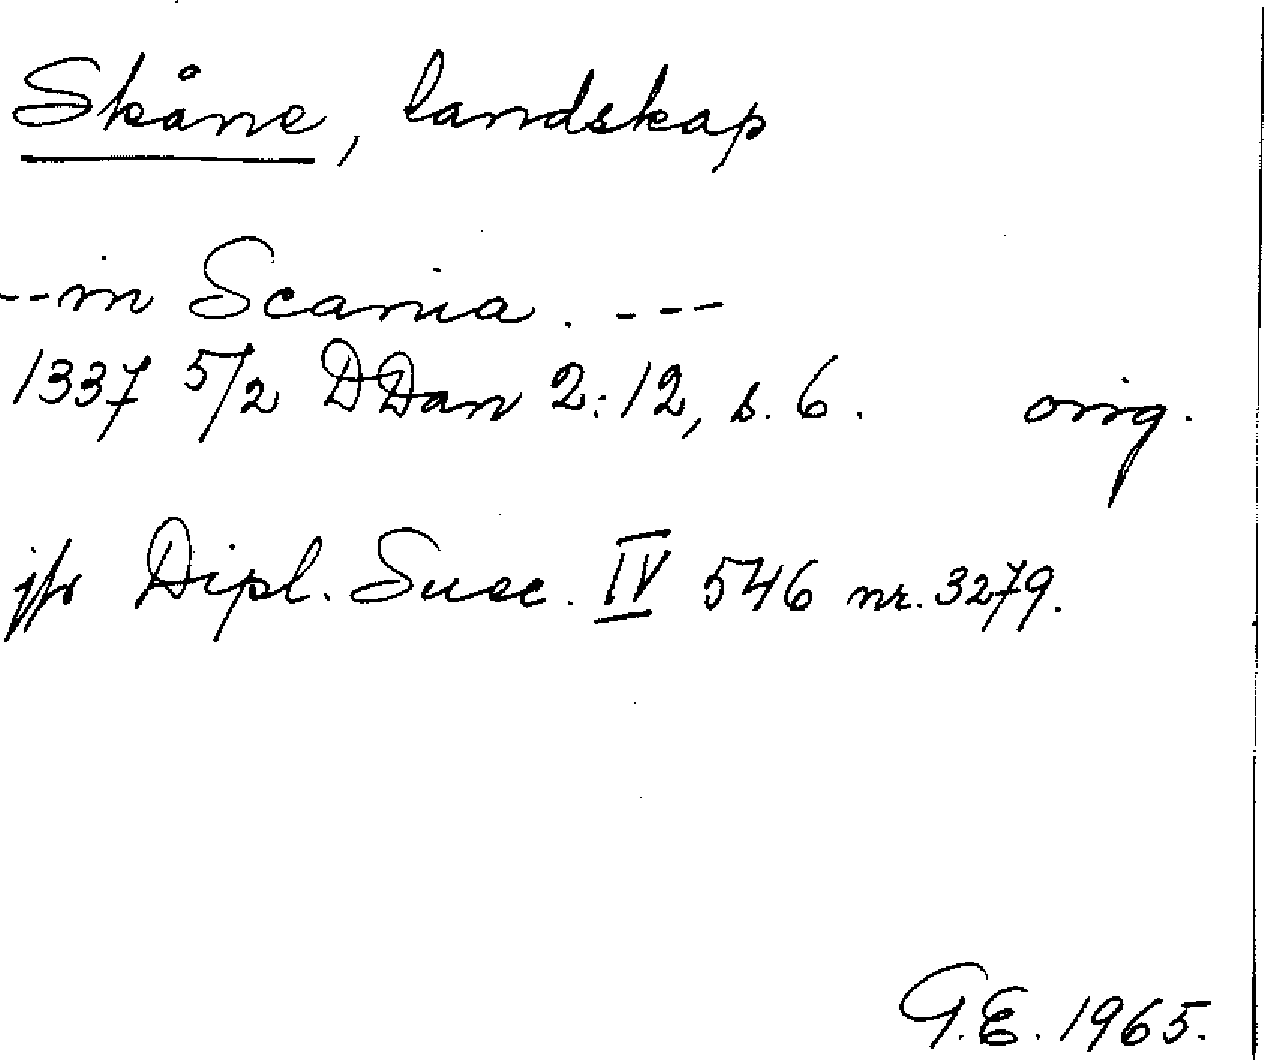 Skåne, landskap
--in Scania. ---
1337 5/2 DDan 2:12, s. 6. orig.
jfr Dipl. Suec. IV 546 nr. 3279.
G.E. 1965.